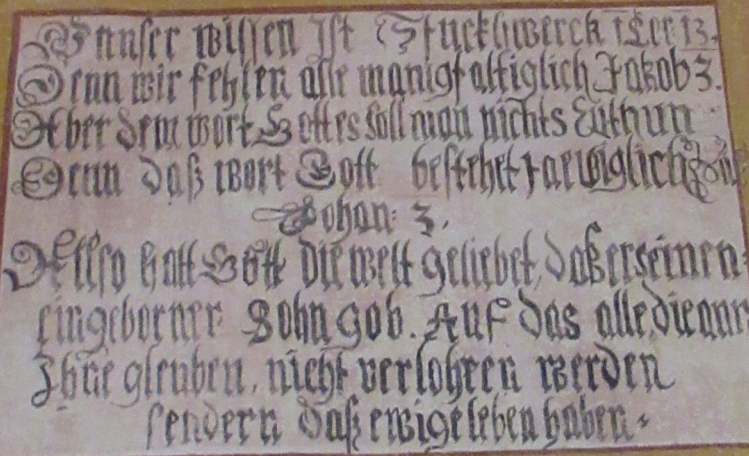 Unser wissen Ist Stuckhwerck 1 Cor: 13.
Denn wir fehlen alle manigfaltiglich Jakob 3.
Aber dem wort Gottes soll man nichts Zuthun
Denn daß wort Gott bestehet ewiglich
Johan: 3.
Allso hatt Gott die welt geliebet, daß er seinen
eingeborner Sohn gob. Auf das alle die ann
Ihne gleuben, nicht verlohren werden
sendern daß ewige leben haben.